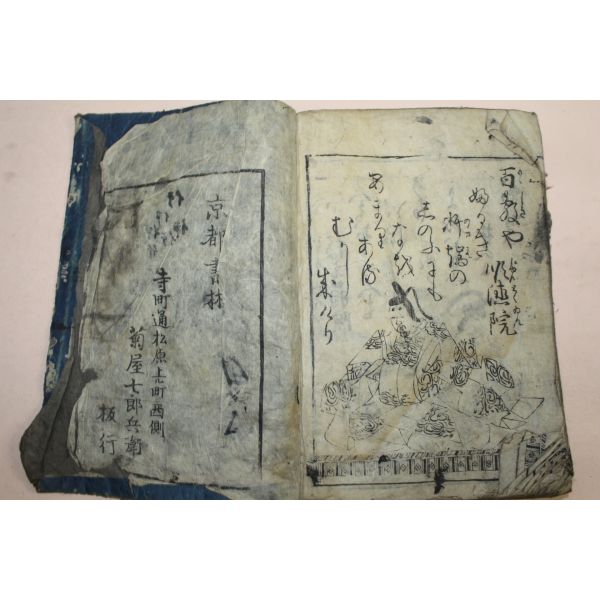 百敷や
順徳院
ふるき
軒端の
しのふにも
なを
あまりある
むかし
成けり
京都書林
寺町通松原上町西側
菊屋七郎兵衛
板行